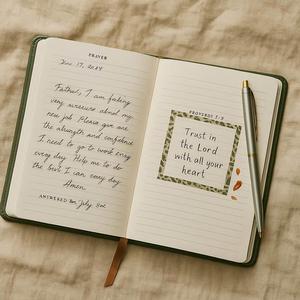 PRAYER
Dec 17, 2024
Father, I am feeling
very anxious about my
new job. Please give me
the strength and confidence
I need to go to work every
every day. Help me to do
the best I can every day.
Amen.
ANSWERED July
PROVERBS 3:5
Trust in
the Lord
with all your
heart